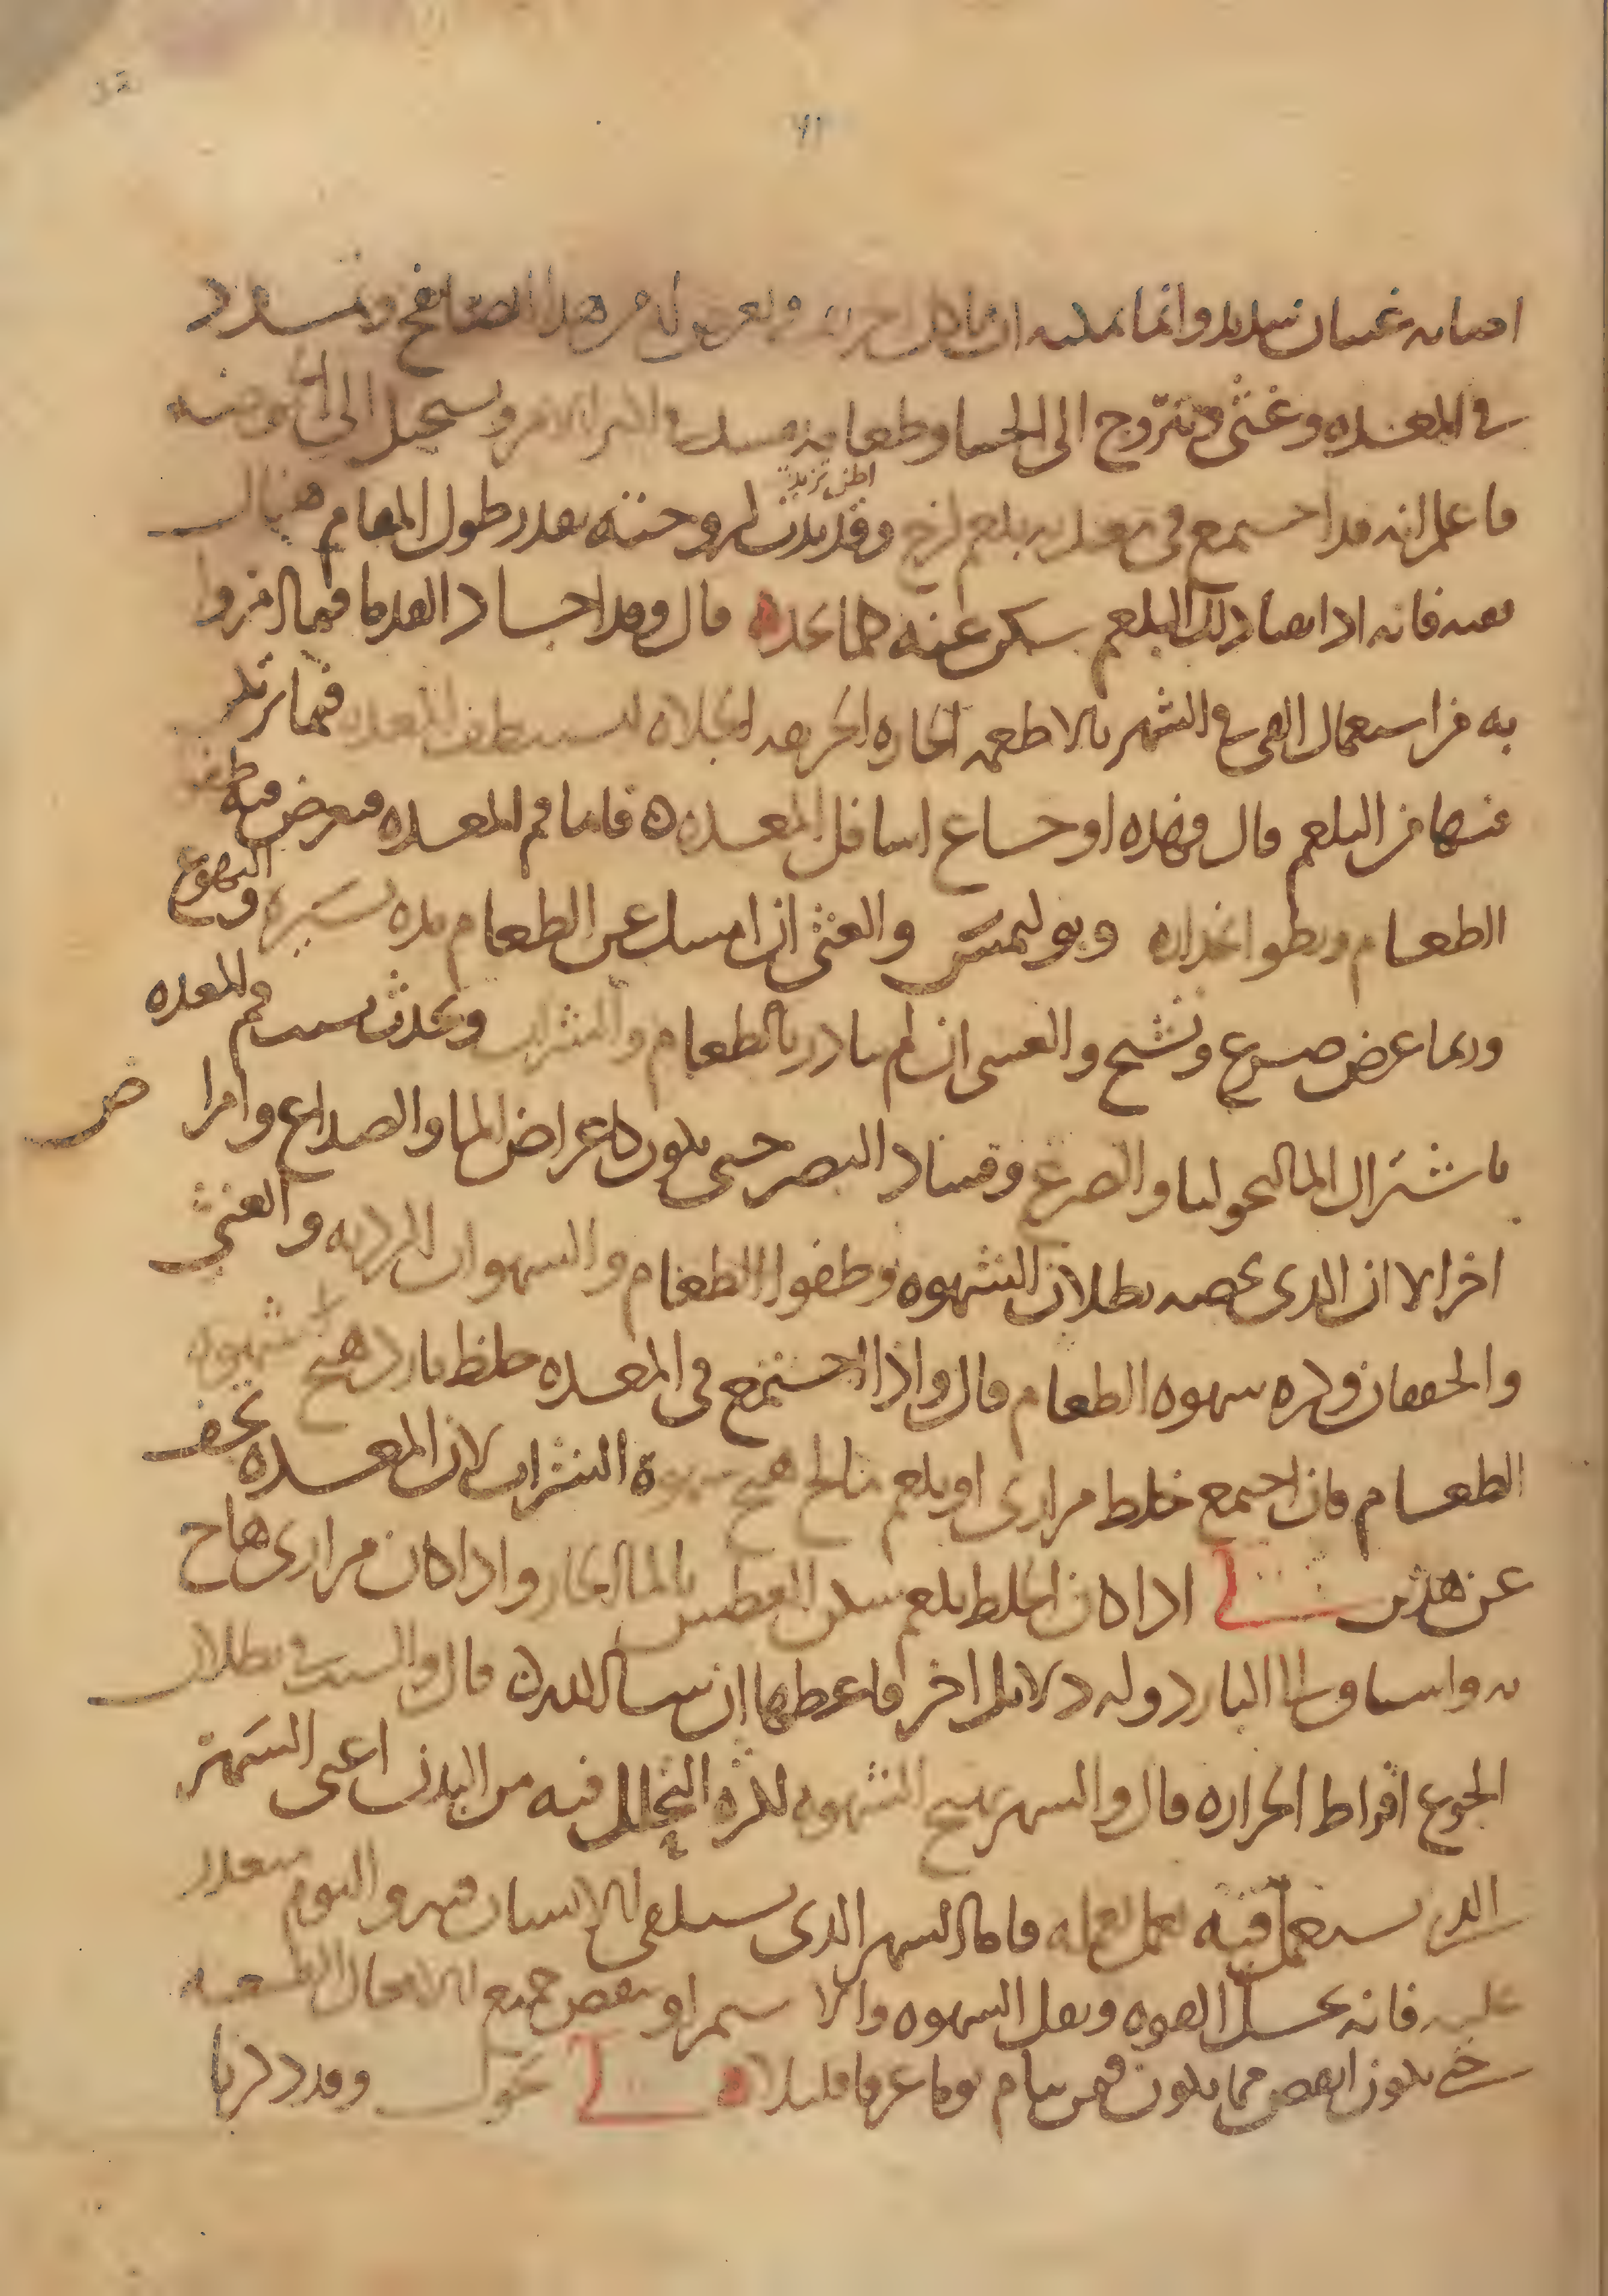 اصابه غثيان شديد وانما يمكنه ان ياكل ويعرض له من هذا النفخ وتمدد
في المعده وغثى ويتروح الى الجشا وطعامه ويستحيل الى الحموضه
فاعلم انه قد اجتمع في معدته بلغم لزج وقد يدت لزوجته بقدر طول المقام هنال
اظن تزيد
بعينه فانه اذا تقيا ذلك البلغم سكن عنه كما يجده قال وقد اجاد القدما فيما امروا
به من استعمال القي في الشهر بالاطعمه الحاره الحريفه الجلاه لتستنظف المعده فيما يتولد
فيها من البلغم قال فهذه اوجاع اسافل المعده ه فاما فم المعده فيعرض فيه طفو
الطعام وبطو انحداره وبوليمس والغشى ان امسك عن الطعام مده يسيره والتهوع
وربما عرض صرع وتشنج والغشى ان لم يبادر بالطعام والشراب ويحدث بسبب فم المعده
باشتراك المالنخوليا والصرع وفساد البصر حتى يكون كاعراض الما والصداع وامراض
اخر الا ان الذى يخصه بطلان الشهوه وطفوا الطعام والشهوات الرديه والغشى
والخفقان وكره شهوه الطعام قال واذا اجتمع في المعده خلط بارد هيج شهوه
الطعام فان اجتمع خلط مرارى او بلغم مالح هيج شهوة الشراب لان المعده تجف
عن هذين لى اذا كان الخلط بلغم سكن العطش بالما الحار واذا كان مرارى هاج
به واستاق الى البارد وله دلايل اخر فاعطها ان شا الله ه قال والسبب في بطلان
الجوع افراط الحراره قال والسهر يهيج الشهوه لكثره التحلل فيه من البدن اعنى السهر
الذى يستعمل فيه عمل يعمله فاما السهر الذى يستلقى الانسان فيه والنوم يتعذر
عليه فانه يحل القوه ويقل الشهوه والاستمرا وينقص جميع الافعال الطبيعيه
حتى يكون انقص مما يكون فيمن ينام نوما عرقا قليلا لى تحول وقد ذكرنا